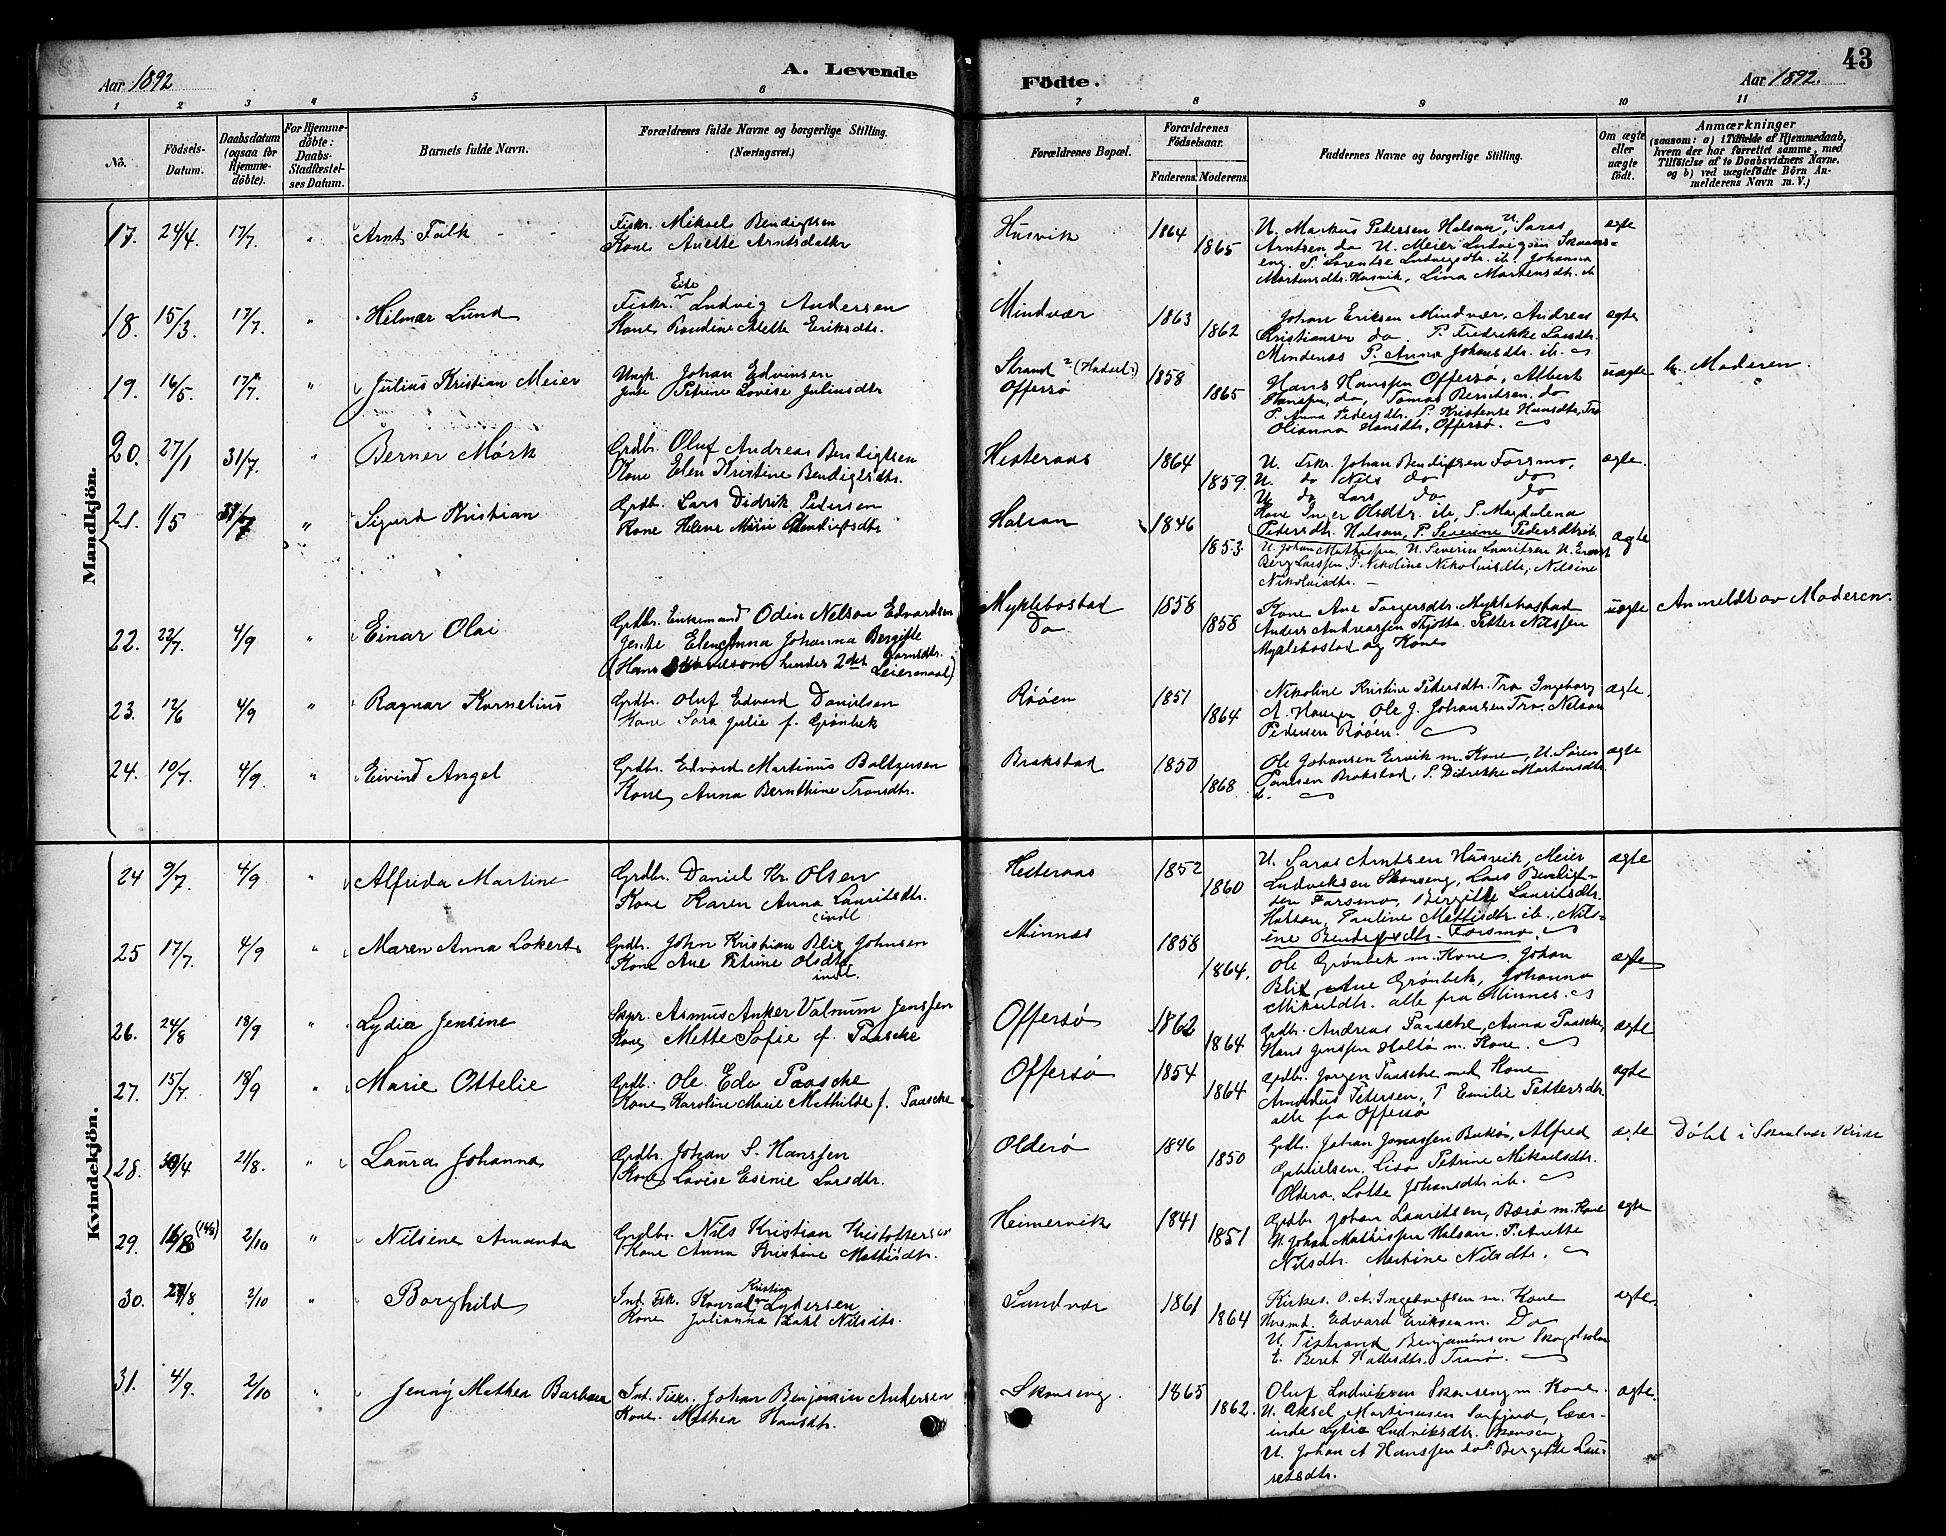 43
Aar 1892
A. Levende
Födte.
Aar 1892.
1 2 3 4 5 6 7 8 9 10 11
No.
Födsels-Datum.
Daabsdatum (ogsaa for Hjemme-döbte).
For Hjemme-döbte: Daabs-Stadfæstel-ses Datum.
Barnets fulde Navn.
Forældrenes fulde Navne og borgerlige Stilling.
(Næringsvei.)
Forældrenes Bopæl.
Forældrenes Födselsaar.
Faderens. Moderens.
Faddernes Navne og borgerlige Stilling.
Om ægte eller uægte födt.
Anmærkninger
(saasom: a) i Tilfælde af Hjemmedaab,
hvem der har forrettet samme, med
Tilföielse af to Daabsvidners Navne,
og b) ved uægtefödte Börn An-
melderens Navn m. V.)
Mandkjön.
17. 24/4. 17/7. " Arnt Falk
Fiskr. Mikael Bendigtsen
Kone Anette Arntsdatter
Husvik 1864 1865
U. Markus Petersen Halsan, U. Saras
Arntsen do U. Meier Ludvigsen Skonseng
P. Lorentse Ludvigsdtr. ib. Johanna
Martensdtr. Husvik, Lina Martensdtr. ib
ægte
18. 15/3. 17/7. " Hilmar Lund
Fiskr. Eide Ludvig Andersen
Kone Randine Alette Eriksdtr.
Mindvær 1863 1862
Johan Eriksen Mindvær, Andreas
Kristiansen do P. Fredrikke Larsdtr.
Mindenas P. Anna Johansdtr. ib.
ægte
19. 16/5. 17/7. " Julius Kristian Meier
Ungk. Johan Edvinsen
Jente Petrine Lovise Juliusdtr
Strand
Offersø 1858 1865
Hans Hanssen Offersø, Albert
Hanssen, do, Tomas Berntsen do
P. Anna Pedersdtr. P. Kristense Hansdtr, Tro
Olianna Hansdtr, Offersø.
uægte Moderen.
20. 27/1 31/7. " Berner Mørk
Grdbr. Oluf Andreas Bendigtsen
Kone Elen Kristine Bendigtsdtr.
Hesteraas 1864 1859.
U. Fskr. Johan Bendigtsen Forsmo,
U. do Nils do do
U. do Lars do do
Kone Inger Olsdtr. ib, P. Magdalena
Petersdtr. Halsan, P. Severine Pedersdtr ib
ægte.
21. 1/5 31/7 " Sigurd Kristian
Grdbr. Lars Didrik Petersen
Kone Helene Marie Bendigtsdtr
Halsan 1846 1853.
U. Johan Mathissen, U. Severin Lauritsen U. Ernst
Berg Larssen, P. Nikoline Nikolaisdtr, Nilsine
Nikolaisdtr.
ægte
22. 22/7. 4/9 " Einar Olai
Grdbr. Enkemand Odin Nelson Edvardsen
Jente Elen Anna Johanna Bergitte
(Hans hendes 2det Leiermaal)
Myklebostad
Do 1858 1858
Kone Ane Torgersdtr. Myklebostad
Anders Andreassen Tjøtta. Petter Nilssen
Myklebostad og Kone
uægte Anmeldt av Moderen.
23. 12/6 4/9 " Ragnar Kornelius
Grdbr. Oluf Edvard Danielsen
Kone Sara Julie f. Grønbek
Røøen 1851 1864
Nikoline Kristine Pedersdtr. Tro Ingeborg
A. Haugen Ole J. Johansen Tro. Nelson
Pedersen Røøen.
ægte.
24. 10/7. 4/9. " Eivind Angel
Grdbr. Edvard Martinus Baltzersen
Kone, Anna Bernthine Transdtr.
Brakstad 1850 1868
Ole Johansen Ervik m. Kone, U. Søren
Paulsen Brakstad, P. Didrikke Martensdtr.
ib.
ægte
Kvindekjön.
24 9/7. 4/9 " Alfrida Martine
Grdbr. Daniel Kr. Olsen
Kone Karen Anna Lauritsdtr.
Hesteraas 1852 1860
U. Saras Arntsen Husvik, Meier
Ludviksen Skonseng, Lars Bendigt-
sen Forsmo, Bergitte Lauritsdtr.
Halsan, Pauline Mattisdtr. ib., Nils-
ine Bendigtsdtr. Forsmo.
ægte
25 17/7. 4/9 " Maren Anna Lokerts
Grdbr. John Kristian Blix Johnsen
Kone Ane Petrine Olsdtr
Minnæs 1858 1864.
Ole Grønbek m. Kone. Johan
Blix, Ane Grønbek, Johanna
Mikaldtr. alle fra Minnes.
ægte
26. 24/8 18/9 " Lydia Jensine
Skpr. Asmus Anker Valnum Jenssen
Kone, Mette Sofie f. Paasche
Offersø 1862 1864
Grdbr. Andreas Paasche, Anna Paasche,
Hans Jenssen Haltø m. Kone.
ægte
27. 15/7. 18/9 " Marie Ottelie
Grdbr. Ole Edv Paasche
Kone Karoline Marie Mathilde f. Paasche
Offersø 1854 1864
Grdbr. Jørgen Paasche med Kone
Arnoldus Petersen, P Emilie Pettersdtr
alle fra Offersø
ægte
28. 30/4 21/8. " Laura Johanna
Grdbr. Johan S. Hanssen
Kone Lovise Esenie Larsdtr.
Olderø 1846 1850
Grdb. Johan Jonassen Buksø, Alfred
Gabrielsen, Lisa Petrine Mikaelsdtr.
Olderø. Lotte Johansdtr. ib.
ægte Döbt i Skaalvær Kirke
29. 16/8 (14/8) 2/10 " Nilsine Amanda
Grdbr. Nils Kristian Kristoffersen
Kone Anna Kristine Mathisdtr.
Heimervik 1841 1851
Grdbr Johan Lauritsen, Bærø m. Kone
U. Johan Mathissen Halsan. P. Anette
Nilsdtr. Martine Nilsdtr.
ægte
30. 27/8 2/10 " Borghild
Ind. Fsk. Konrad Kristian Lydersen
Kone Julianna Dahl Nilsdtr.
Sandvær 1861 1864
Kirkes. O. A. Ingebrigtsen m. Kone
Husmd. Edvard Eriksen m. Do
U. Tistrand Benjaminsen Skogsholm
E. Beret Hallesdtr. Tranø.
ægte.
31. 4/9. 2/10 " Jenny Mathea Barbara
Ind. Fiskr. Johan Benjamin Andersen
Kone Mathea Hansdtr.
Skonseng. 1865 1862.
Oluf Ludviksen Skonseng m. Kone.
U. Aksel Martinusen Sørfjord, Lærer-
inde Lydia Ludviksdtr. Skonseng,
U. Johan A Hanssen do P. Bergitte Lau-
ritsdtr.
ægte.